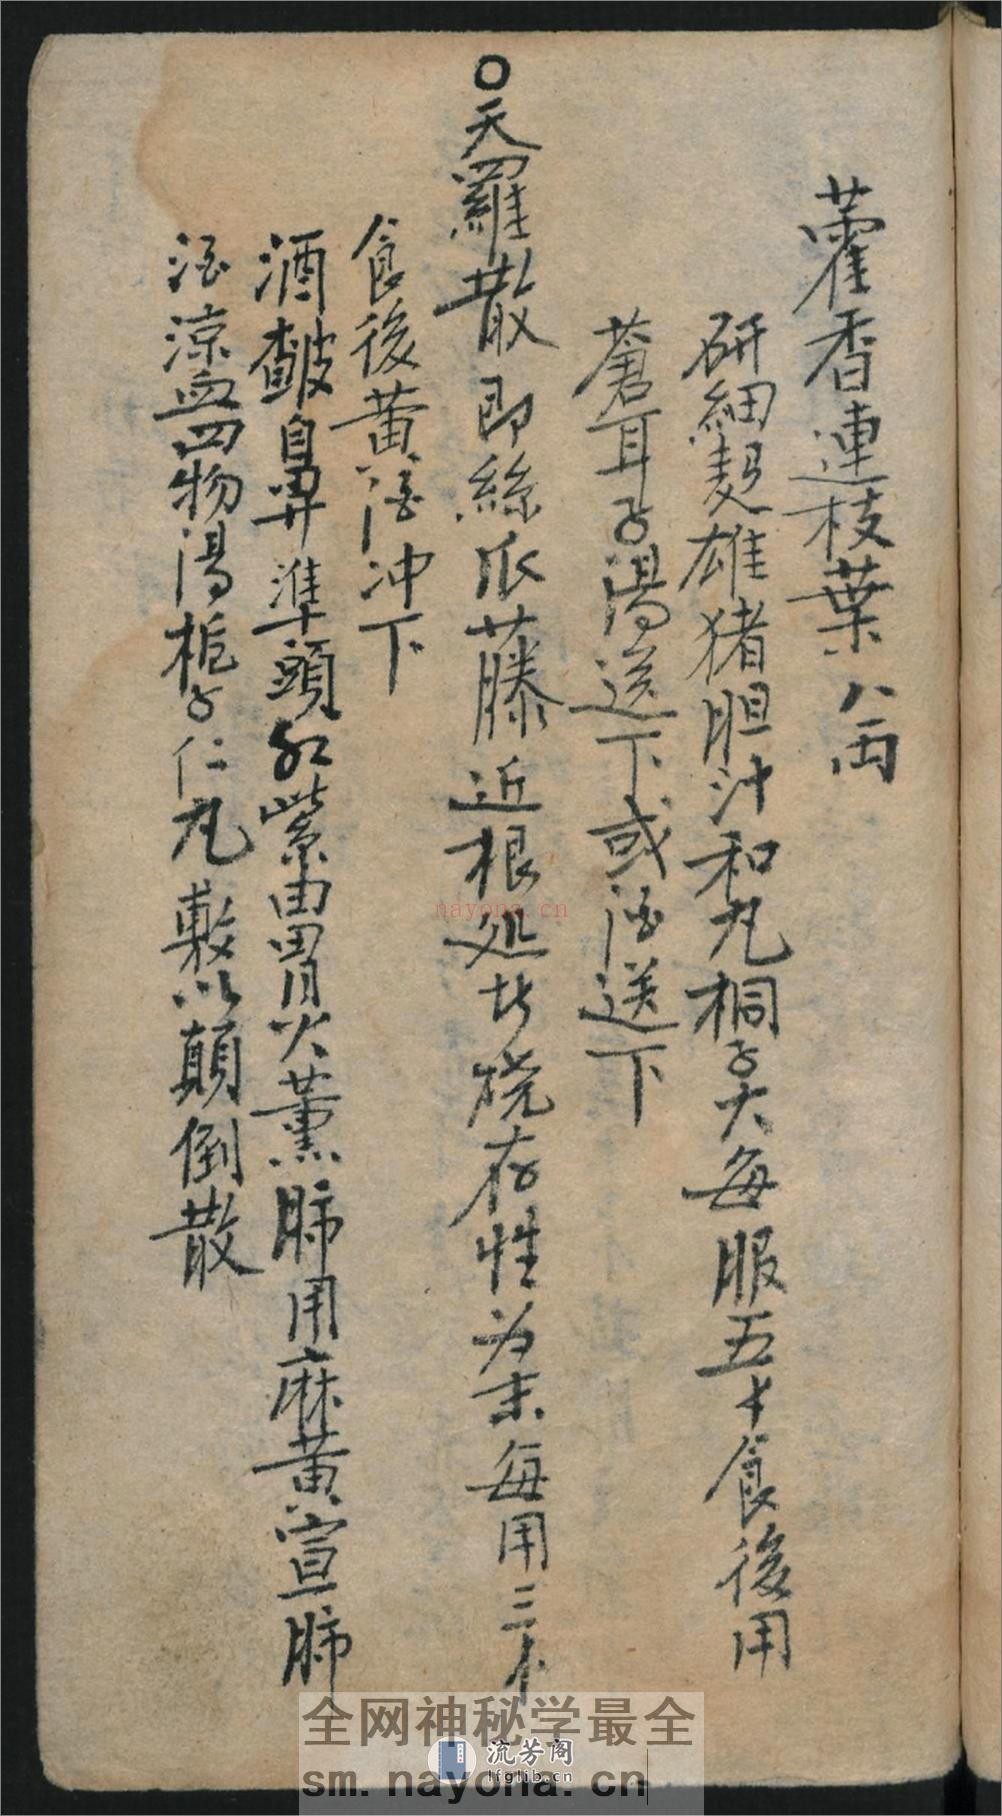 藿香連枝葉八両
研細麫雄猪胆汁和丸桐子大每服五十食後用
蒼耳子湯送下或酒送下
〇天羅散即絲瓜藤近根処燒存性为末每用三
食後黄酒冲下
酒皶鼻準頭紅紫由胃火薰肺用麻黄宣肺
酒凉血四物湯栀子仁丸敷以顛倒散
nayona.cn
全网神秘学最全
流芳阁
lfglib.cn
sm.nayona.cn